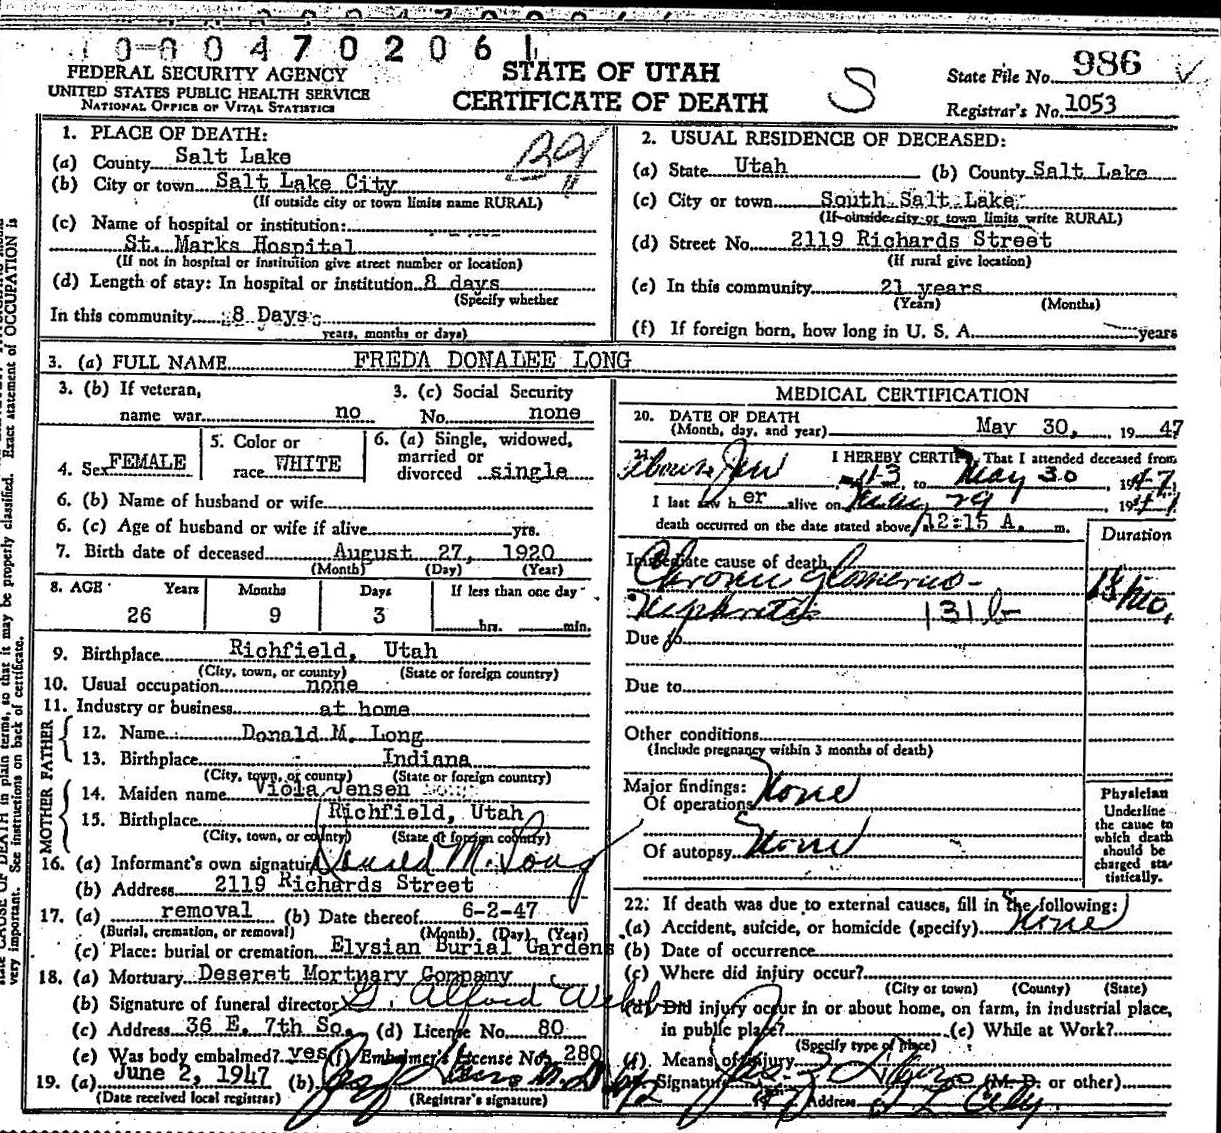 1 0 0 0 4 7 0 2 0 6 1
FEDERAL SECURITY AGENCY
UNITED STATES PUBLIC HEALTH SERVICE
NATIONAL OFFICE OF VITAL STATISTICS
STATE OF UTAH
CERTIFICATE OF DEATH
S
State File No. 986
Registrar's No. 1053
1. PLACE OF DEATH:
(a) County Salt Lake
(b) City or town Salt Lake City
(If outside city or town limits name RURAL)
(c) Name of hospital or institution:
St. Marks Hospital
(If not in hospital or institution give street number or location)
(d) Length of stay: In hospital or institution 8 days
(Specify whether
In this community 8 Days
years, months or days)
2. USUAL RESIDENCE OF DECEASED:
(a) State Utah (b) County Salt Lake
(c) City or town South Salt Lake
(If outside city or town limits write RURAL)
(d) Street No. 2119 Richards Street
(If rural give location)
(e) In this community 21 years
(Years) (Months)
(f) If foreign born, how long in U. S. A. years
3. (a) FULL NAME FREDA DONALEE LONG
3. (b) If veteran,
name war no
3. (c) Social Security
No. none
4. Sex FEMALE
5. Color or
race WHITE
6. (a) Single, widowed,
married or
divorced single
6. (b) Name of husband or wife
6. (c) Age of husband or wife if alive yrs.
7. Birth date of deceased August 27, 1920
(Month) (Day) (Year)
8. AGE Years Months Days If less than one day
26 9 3 hrs. min.
9. Birthplace Richfield, Utah
(City, town, or county) (State or foreign country)
10. Usual occupation none
11. Industry or business at home
FATHER
12. Name Donald M. Long
13. Birthplace Indiana
(City, town, or county) (State or foreign country)
MOTHER
14. Maiden name Viola Jensen
15. Birthplace Richfield, Utah
(City, town, or county) (State or foreign country)
16. (a) Informant's own signature Donald M. Long
(b) Address 2119 Richards Street
17. (a) removal (b) Date thereof 6-2-47
(Burial, cremation, or removal) (Month) (Day) (Year)
(c) Place: burial or cremation Elysian Burial Gardens
18. (a) Mortuary Deseret Mortuary Company
(b) Signature of funeral director Alford
(c) Address 36 E. 7th So. (d) License No. 80
(e) Was body embalmed? yes (f) Embalmer's License No. 280
19. (a) June 2, 1947 (b)
(Date received local registrar) (Registrar's signature)
MEDICAL CERTIFICATION
20. DATE OF DEATH
(Month, day, and year) May 30, 1947
21. I HEREBY CERTIFY, That I attended deceased from
about Jan 43 to May 30 1947
I last saw her alive on May 29 1947
death occurred on the date stated above 12:15 A. m.
Duration
Immediate cause of death
Chronic Glomerulo-
Nephritis 131 b
Due to
Due to
Other conditions
(Include pregnancy within 3 months of death)
Major findings:
Of operations None
Of autopsy None
Physician
Underline
the cause to
which death
should be
charged sta-
tistically.
22. If death was due to external causes, fill in the following:
(a) Accident, suicide, or homicide (specify) None
(b) Date of occurrence
(c) Where did injury occur?
(City or town) (County) (State)
(d) Did injury occur in or about home, on farm, in industrial place,
in public place? (e) While at Work?
(Specify type of place)
(f) Means of injury
Signature (M. D. or other)
Address S L City
CAUSE OF DEATH in plain terms, so that it may be properly classified. Exact statement of OCCUPATION is
very important. See instructions on back of certificate.